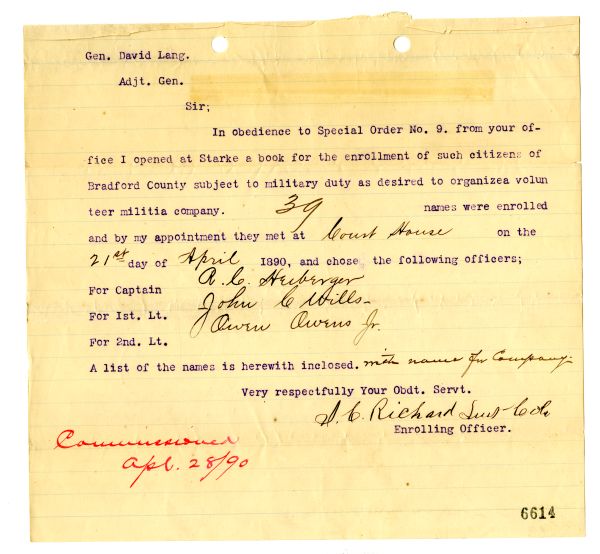 Gen. David Lang.
Adjt. Gen.
Sir;
In obedience to Special Order No. 9. from your of-
fice I opened at Starke a book for the enrollment of such citizens of
Bradford County subject to military duty as desired to organizea volun
teer militia company. 39 names were enrolled
and by my appointment they met at Court House on the
21st day of April 1890, and chose the following officers;
For Captain A. C. Heiberger
For 1st. Lt. John C Wills
For 2nd. Lt. Owen Owens Jr.
A list of the names is herewith inclosed. with name for Company
Very respectfully Your Obdt. Servt.
Richard
Enrolling Officer.
Commissioned
Apl. 28/90
6614